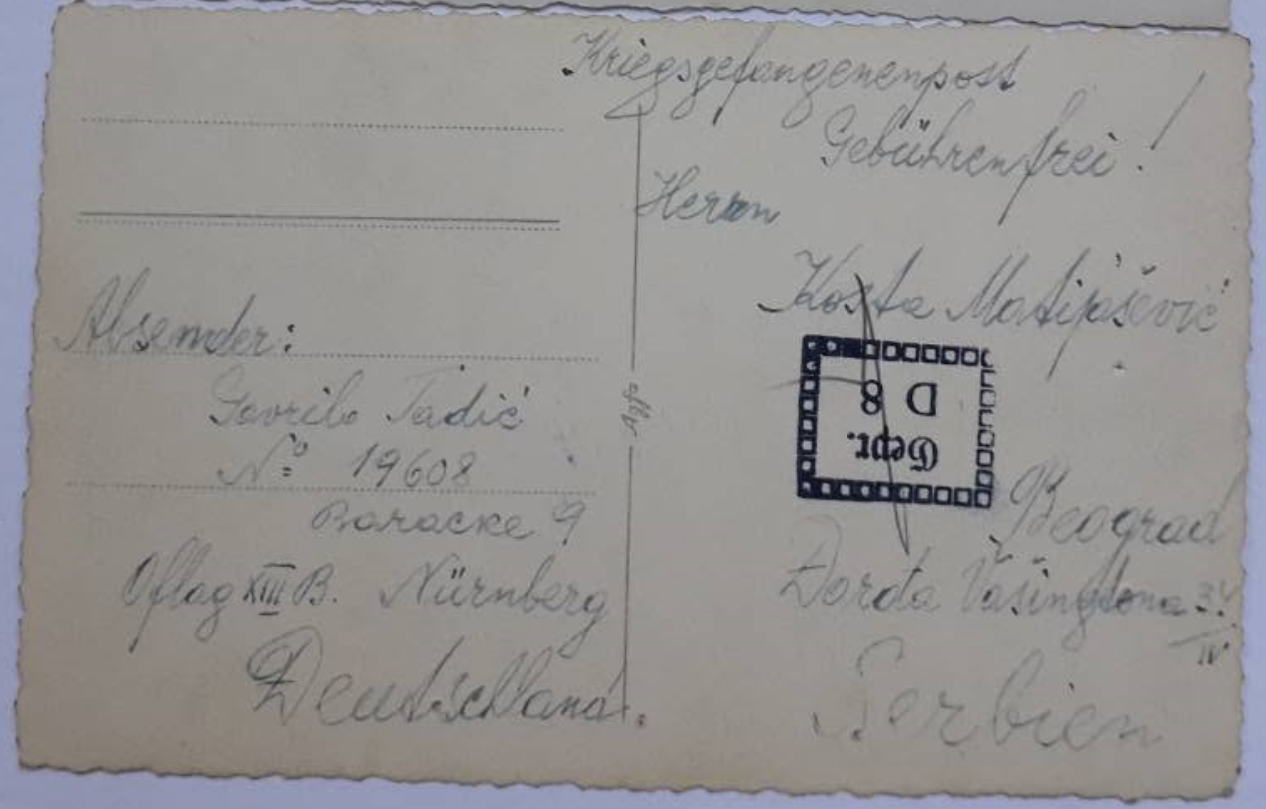 Kriegsgefangenenpost
Gebührenfrei!
Herrn
Kosta Matijašević
Gept.
D 8
Beograd
Đorđa Vašingtona 34/IV
Serbien
Absender:
Gavrilo Tadić
Nº 19608
Baracke 9
Oflag XIII B. Nürnberg
Deutschland.
Agfa